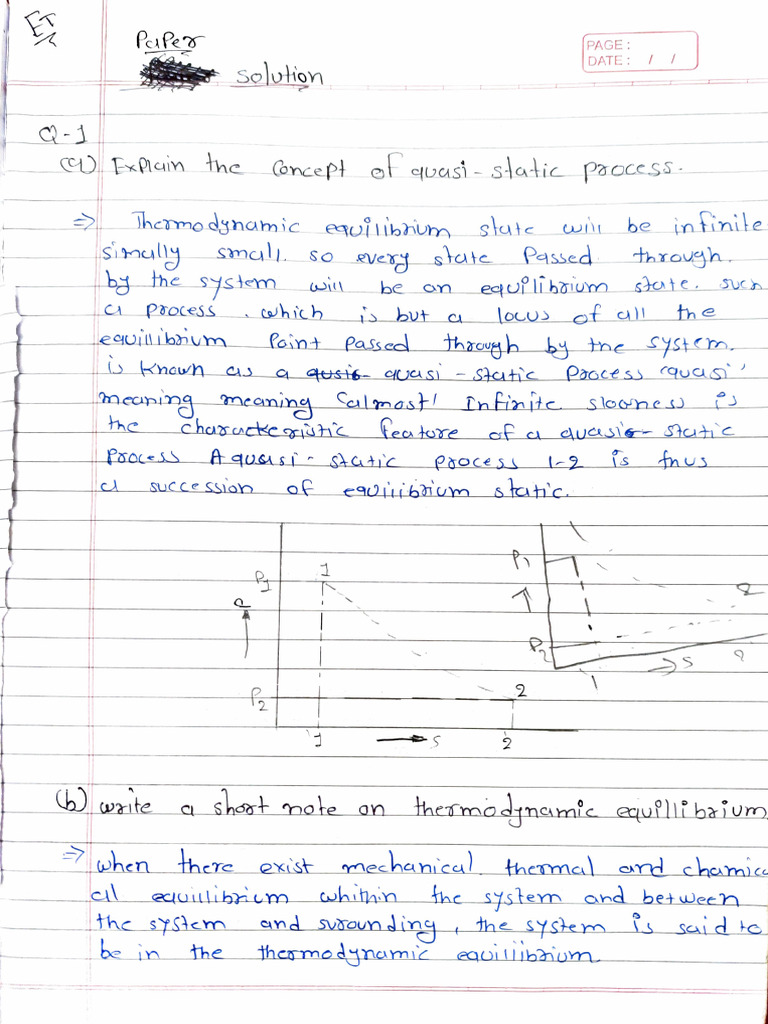 ET
Paper
PAGE :
DATE : / /
solution
Q-1
(a) Explain the concept of quasi-static process.
⇒ Thermodynamic equilibrium state will be infinite
simally small. so every state Passed through.
by the system will be an equilibrium state. such
a process. which is but a locus of all the
equilibrium Point passed through by the system.
is known as a qusis quasi-static Process 'quasi'
meaning meaning 'almost' Infinite slowness is
the characteristic feature of a quasis-static
process A quasi-static process 1-2 is thus
a succession of equilibrium static.
P1
1
P
P2
2
1
→ S
2
P1
2
P2
→ S
2
1
(b) write a short note on thermodynamic equillibrium
⇒ when there exist mechanical. thermal and chamic
al equillibrium whithin the system and between
the system and surounding, the system is said to
be in the thermodynamic equilibrium